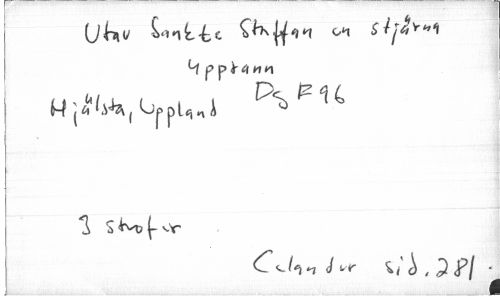 Utav Sankte Staffan en stjärna
upprann
Hjälsta, Uppland Dg R 96
3 strofer
Celander sid. 281.